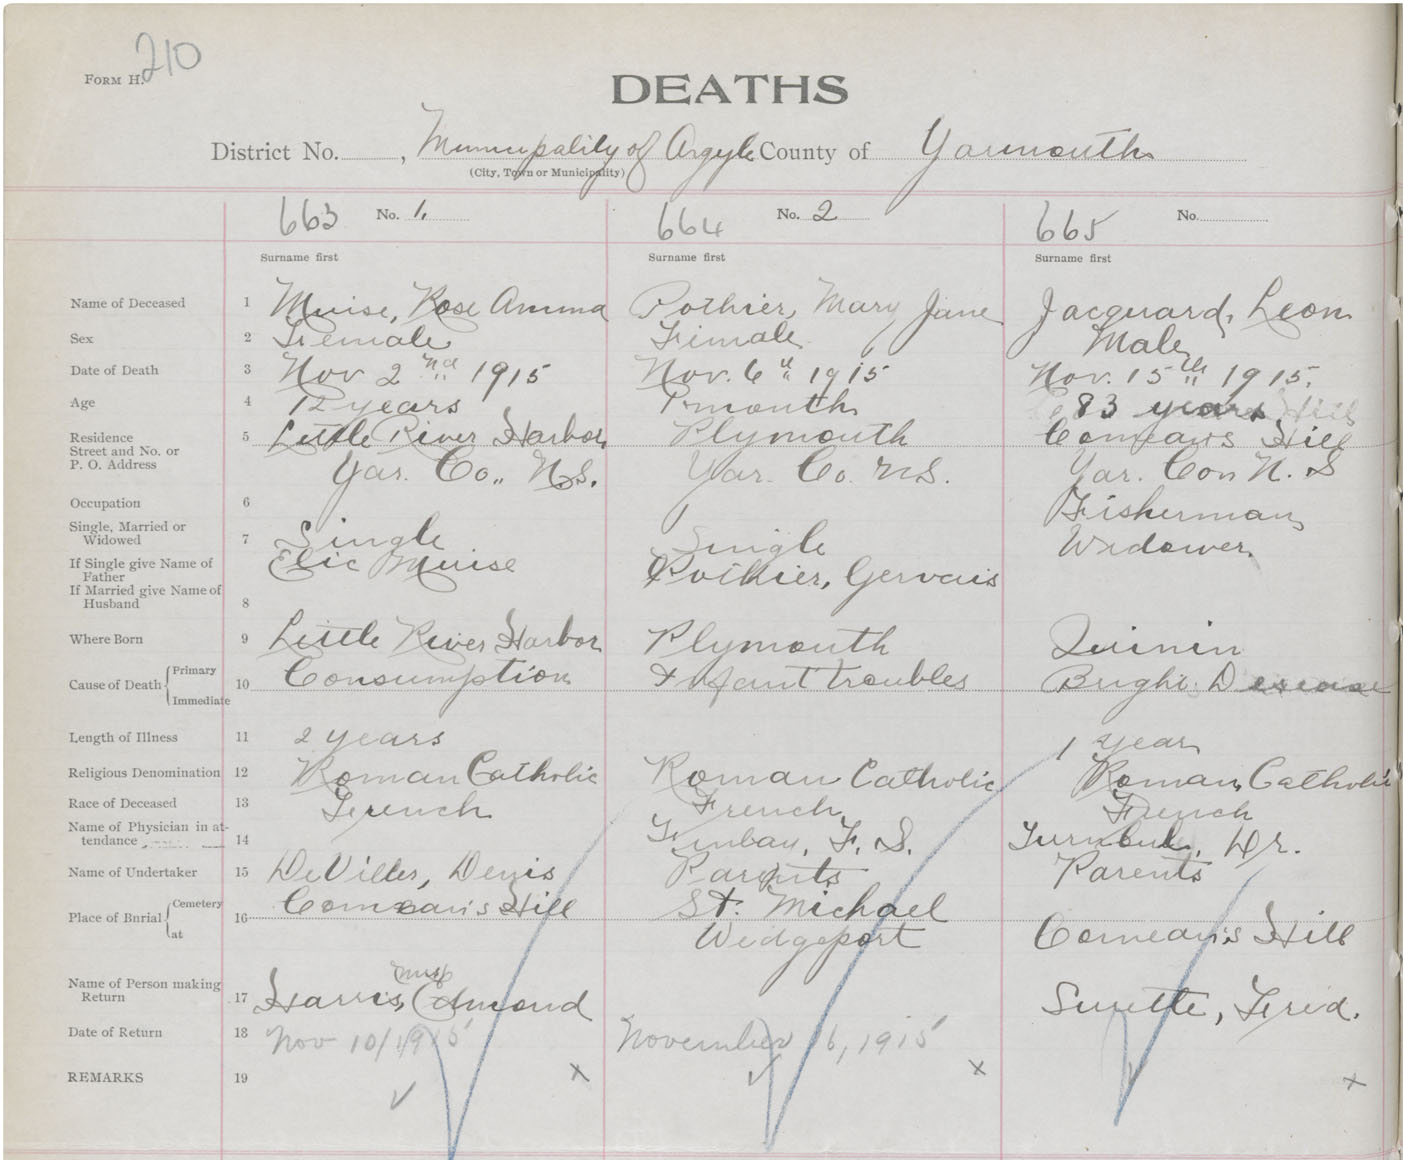 FORM H. 210
DEATHS
District No. , Municipality of Argyle County of Yarmouth
(City, Town or Municipality)
663 No. 1. 664 No. 2 665 No.
Surname first Surname first Surname first
Name of Deceased 1 Muise, Rose Anma Pothier, Mary Jane Jacquard, Leon
Sex 2 Female Female Male
Date of Death 3 Nov 2nd 1915 Nov. 6th 1915 Nov. 15th 1915.
Age 4 12 years 1 month 83 years
Residence 5 Little River Harbor Plymouth Comeau's Hill
Street and No. or
P. O. Address Yar. Co., N.S. Yar. Co. N.S. Yar. Con N. S
Occupation 6 Fisherman
Single, Married or
Widowed 7 Single Single Widower
If Single give Name of
Father Elic Muise Pothier, Gervais
If Married give Name of
Husband 8
Where Born 9 Little River Harbor Plymouth Quinin
Cause of Death Primary 10 Consumption Infant Troubles Bright Desease
Immediate
Length of Illness 11 2 years 1 year
Religious Denomination 12 Roman Catholic Roman Catholic Roman Catholic
Race of Deceased 13 French French French
Name of Physician in at-
tendance 14 F. S. Turnbull, Dr.
Name of Undertaker 15 DeViller, Denis Parents Parents
Place of Burial Cemetery 16 Comeau's Hill St. Michael
at Wedgeport Comeau's Hill
Name of Person making
Return 17 Harris, Mrs Edmond Surette, Fred.
Date of Return 18 Nov 10/1915 November 16, 1915
REMARKS 19 x x x